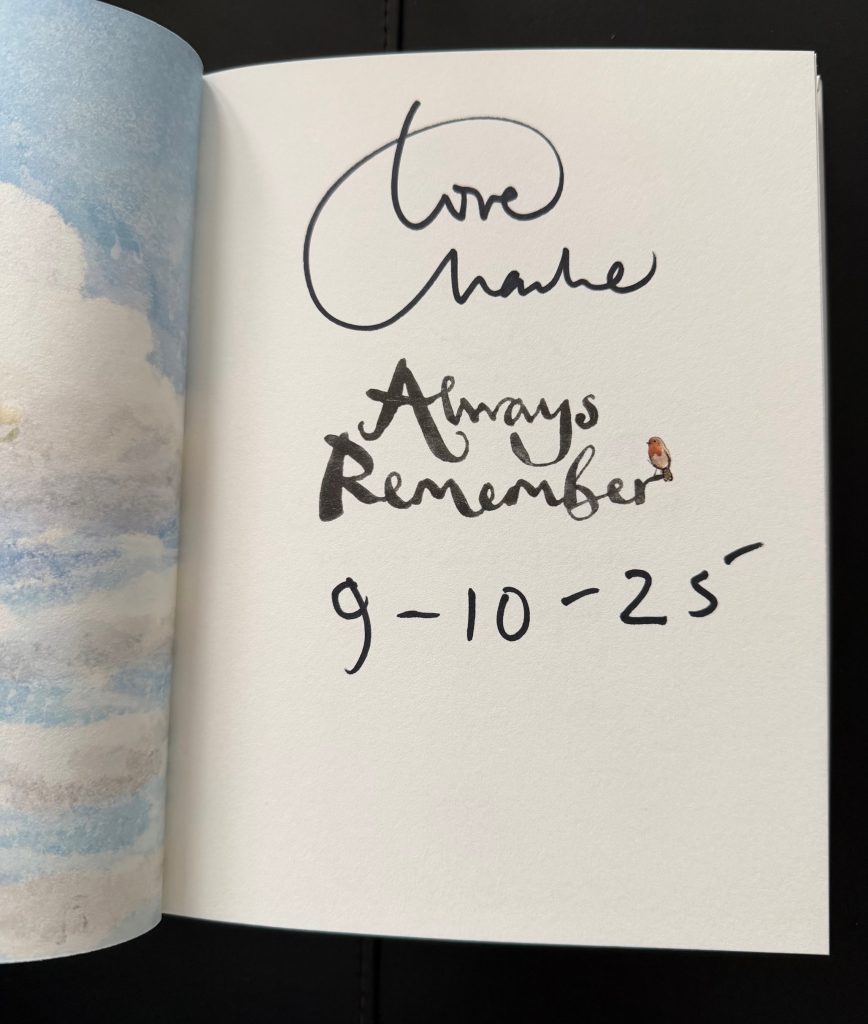 love
Charlie
Always
Remember
9-10-25